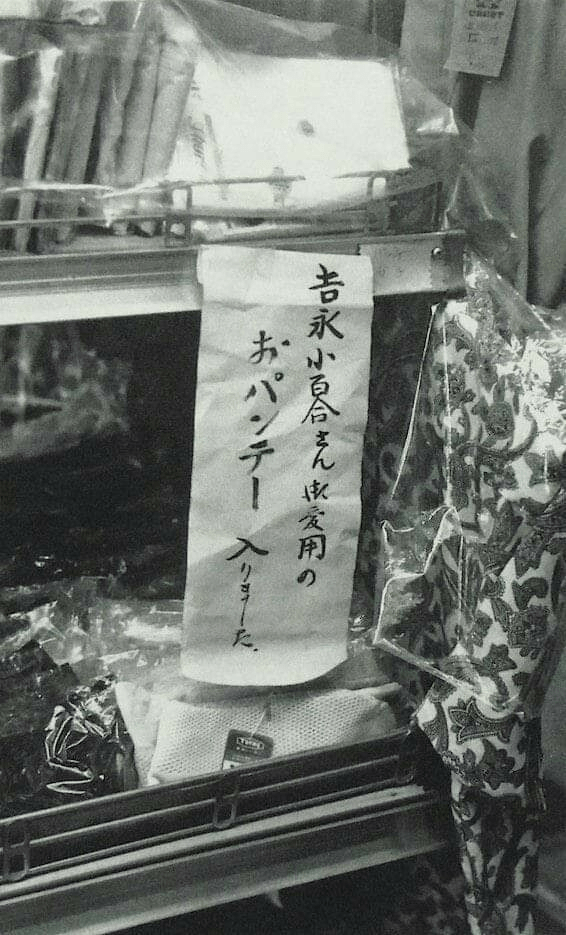 吉永小百合さん御愛用の
おパンテー入りました。